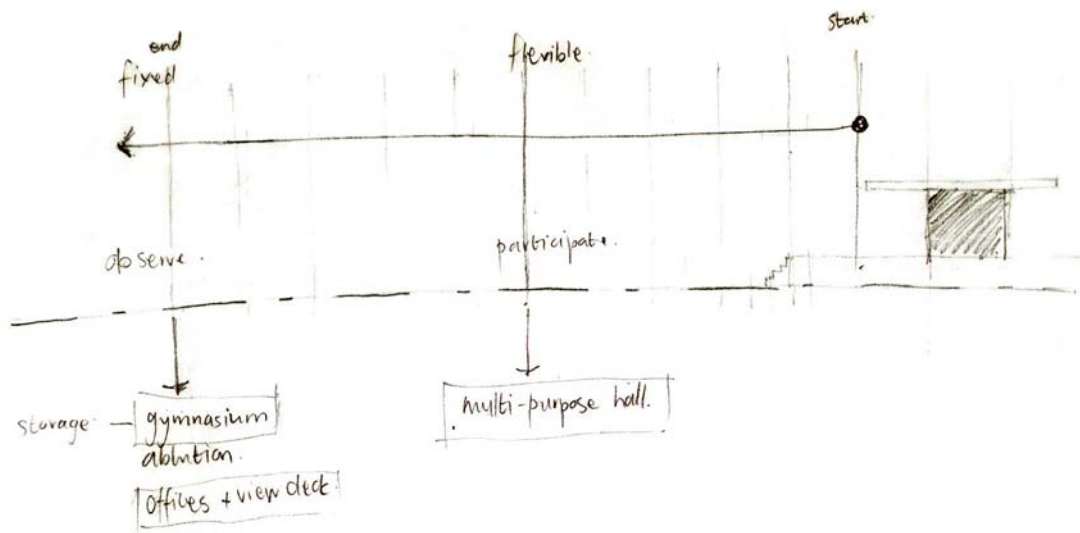 start.
end
fixed
flexible.
observe.
participate.
storage
gymnasium
ablution.
offices + view deck.
multi-purpose hall.